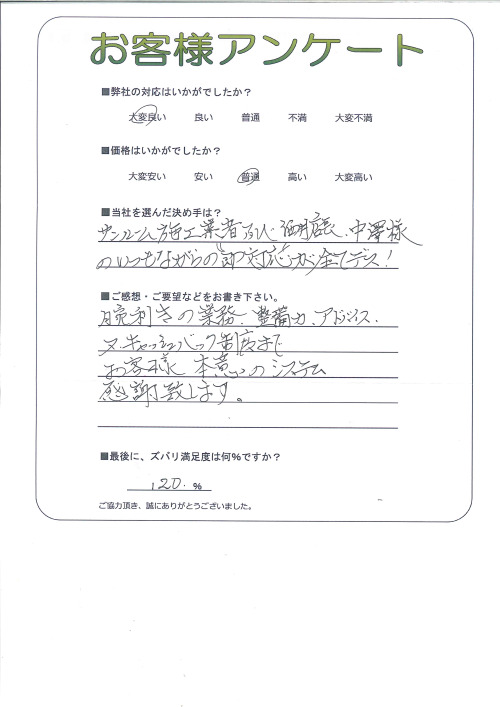 お客様アンケート
■弊社の対応はいかがでしたか？
大変良い 良い 普通 不満 大変不満
■価格はいかがでしたか？
大変安い 安い 普通 高い 大変高い
■当社を選んだ決め手は？
サンルーム施工業者及び 店長、中澤様
のいつもながらの 対応が全てデス！
■ご感想・ご要望などをお書き下さい。
腕利きの業務、整備力、アドバイス、
又、キャッシュバック制度まで
お客様 本意のシステム
感謝致します。
■最後に、ズバリ満足度は何％ですか？
120.％
ご協力頂き、誠にありがとうございました。